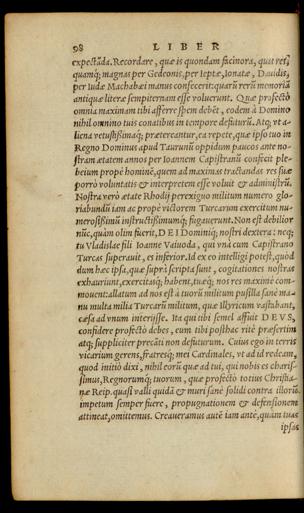 98 LIBER
expectãda. Recordare, quæ is quondam facinora, quas res,
quamq; magnas per Gedeonis, per Ieptæ, Ionatæ, Dauidis,
per Iudæ Machabæi manus confecerit: quarũ rerũ memoria
antiquæ literæ sempiternam esse voluerunt. Quæ profectò
omnia maximam tibi afferre spem debët, eodem à Domino
nihil omnino tuis conatibus in tempore defuturũ. Atq; vt a-
liena vetustissimaq; prætereantur, ea repete, quæ ipso tuo in
Regno Dominus apud Taurunũ oppidum paucos ante no-
stram ætatem annos per Ioannem Capistranũ confecit ple-
beium propè hominẽ, quem ad maximas tractandas res suæ
porrò voluntatis & interpretem esse voluit & administrũ.
Nostra verò ætate Rhodij perexiguo militum numero glo-
riabundũ iam ac propè victorem Turcarum exercitum nu-
merosissimũ instructissimumq; fugauerunt. Non est debilior
nũc, quàm olim fuerit, DEI Domini q; nostri dextera: neq;
tu Vladislae fili Ioanne Vaiuoda, qui vnà cum Capistrano
Turcas superauit, es inferior. Id ex eo intelligi potest, quòd
dum hæc ipsa, quæ suprà scripta sunt, cogitationes nostras
exhauriunt, exercitatq; habent, tuæq; nos res maximè com-
mouent: allatum ad nos est à tuorũ militum pusilla sanè ma-
nu multa milia Turcarũ militum, quæ Illyricum vastabant,
cæsa ad vnum interijsse. Ita qui tibi semel affuit DEVS,
confidere profectò debes, eum tibi posthac ritè præsertim
atq; suppliciter precãti non defuturum. Cuius ego in terris
vicarium gerens, fratresq; mei Cardinales, vt ad id redeam,
quod initio dixi, nihil eorũ quæ ad tui, qui nobis es charis-
simus, Regnorumq; tuorum, quæ profectò totius Christia-
næ Reip. quasi valli quidã & muri sanè solidi contra illorũ
impetum semper fuere, propugnationem & defensionem
attineat, omittemus. Creaueramus autẽ iam antè, quàm tuas
ipsas